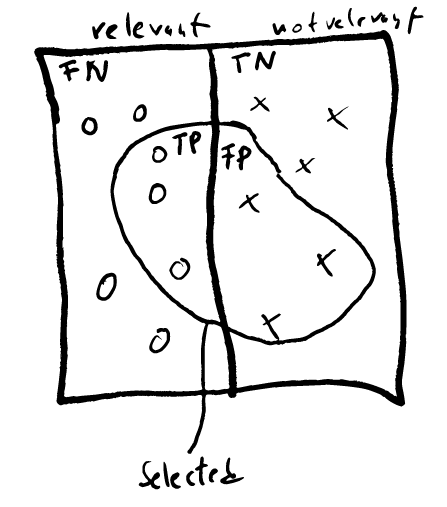 relevant not relevant
FN TN
TP FP
Selected